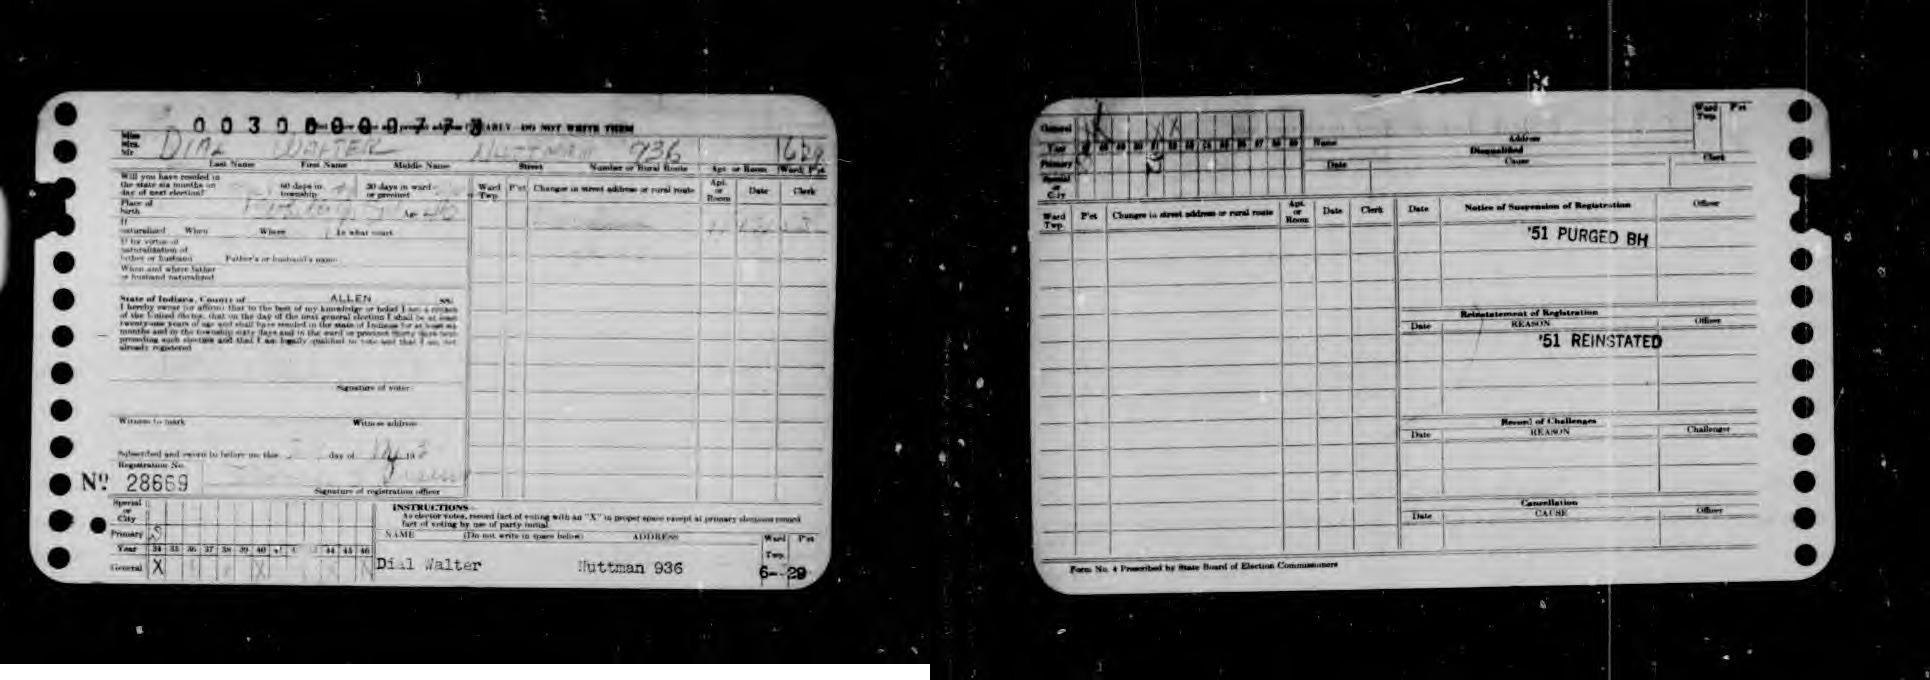 0 0 3 0 0 0 0 0 7 7
EARLY - DO NOT WRITE THEM
Miss
Mrs.
Mr.
DIAL WALTER HUTTMAN 936 6 29
Last Name First Name Middle Name Street Number or Rural Route Apt. or Room Ward P'ct
Will you have resided in
the state six months on
day of next election? 60 days in
township 30 days in ward
or precinct
Place of
birth Age
If
naturalized When Where In what court
If by virtue of
naturalization of
father or husband Father's or husband's name
When and where father
or husband naturalized
Ward
Twp. P'ct Changes in street address or rural route Apt.
or
Room Date Clerk
State of Indiana, County of ALLEN SS:
I hereby swear (or affirm) that to the best of my knowledge or belief I am a citizen
of the United States, that on the day of the next general election I shall be at least
twenty-one years of age and shall have resided in the state of Indiana for at least six
months and in the township sixty days and in the ward or precinct thirty days next
preceding such election and that I am legally qualified to vote and that I am not
already registered
Signature of voter
Witness to mark Witness address
Subscribed and sworn to before me this day of 19
Registration No.
No 28669
Signature of registration officer
Special
or
City
Primary S
Year 34 35 36 37 38 39 40 41 44 45 46
General X X
INSTRUCTIONS
As elector votes, record fact of voting with an "X" in proper space except at primary elections record
fact of voting by use of party initial
NAME (Do not write in space below) ADDRESS Ward
Twp. P'ct
Dial Walter Huttman 936 6- 29
General X X X
Year 48 49 50 51 52 53 54 55 56 57 58 59
Primary
Special
or
City
Name Address Ward
Twp. P'ct
Disqualified
Date Cause Clerk
Ward
Twp. P'ct Changes in street address or rural route Apt.
or
Room Date Clerk
Date Notice of Suspension of Registration Officer
'51 PURGED BH
Reinstatement of Registration
Date REASON Officer
'51 REINSTATED
Record of Challenges
Date REASON Challenger
Cancellation
Date CAUSE Officer
Form No. 4 Prescribed by State Board of Election Commissioners